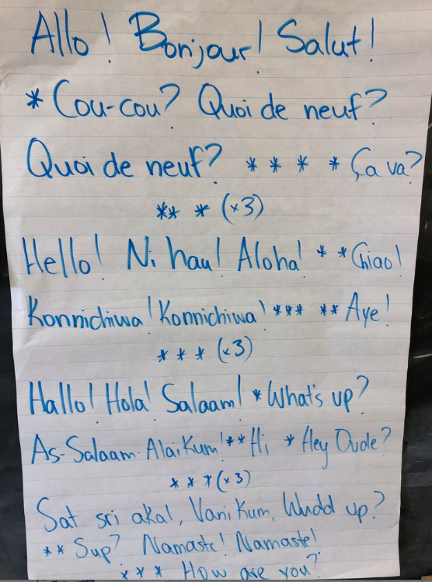 Allo! Bonjour! Salut!
* Cou-cou? Quoi de neuf?
Quoi de neuf? * * * * Ça va?
** * (x3)
Hello! Ni hau! Aloha! * * Chiao!
Konnichiwa! Konnichiwa! *** ** Aye!
* * * (x3)
Hallo! Hola! Salaam! * What's up?
As-Salaam-Alaikum! ** Hi * Hey Dude?
* * * (x3)
Sat sri akal, Vanikum, Wudd up?
** Sup? Namaste! Namaste!
*** How are you?